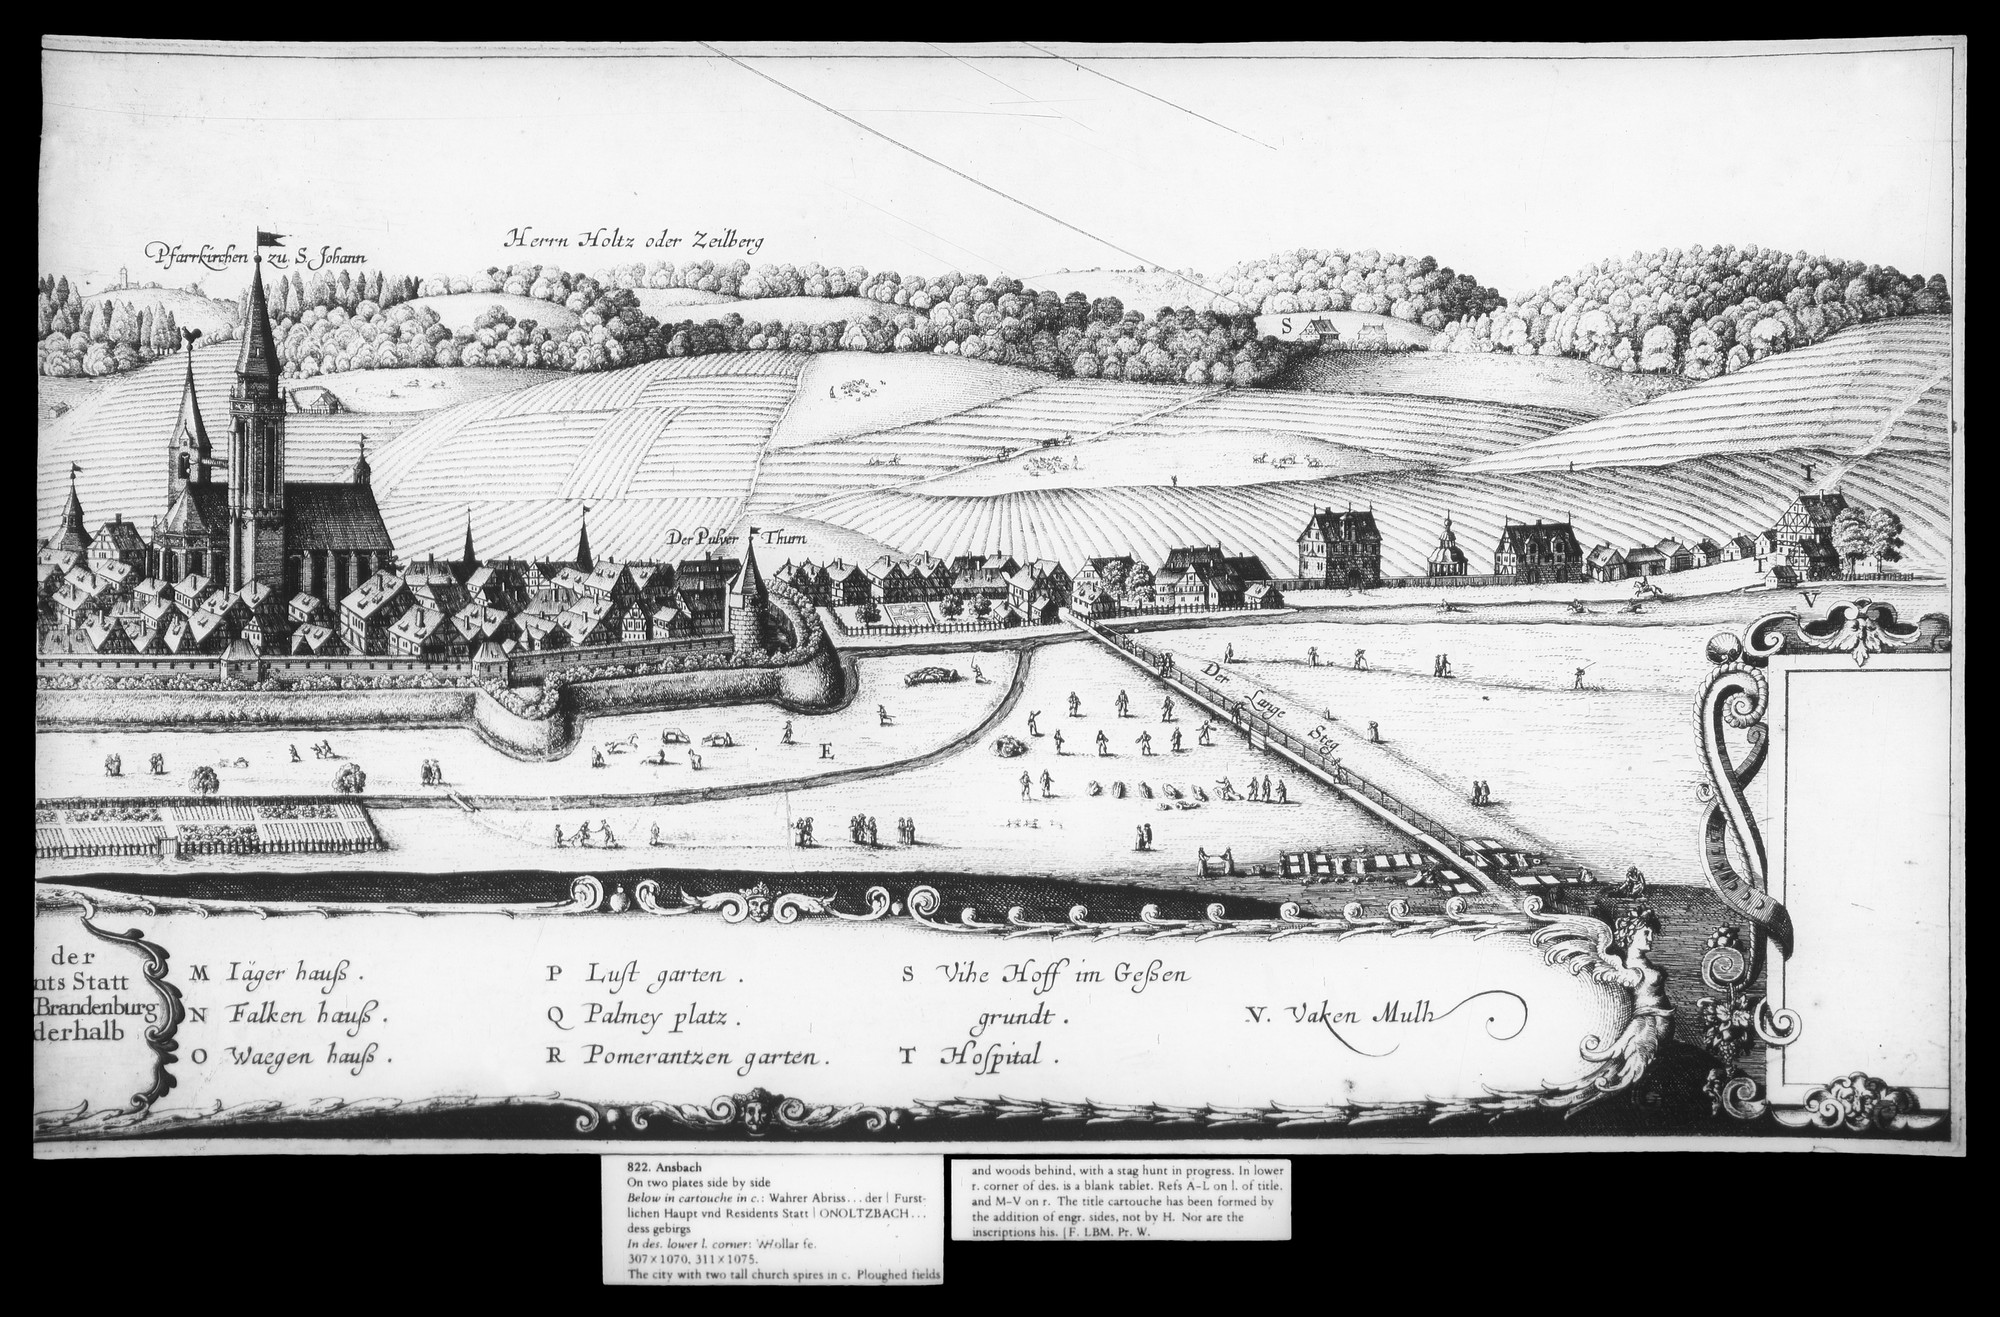 Pfarrkirchen zu S. Johann
Herrn Holtz oder Zeilberg
S
T
Der Pulver Thurn
T
V
Der Lange Steg
E
der
nts Statt
Brandenburg
derhalb
M Iäger hauß.
N Falken hauß.
O Waegen hauß.
P Lust garten.
Q Palmey platz.
R Pomerantzen garten.
S Vihe Hoff im Geßen
grundt.
T Hospital.
V. Vaken Mulh
822. Ansbach
On two plates side by side
Below in cartouche in c.: Wahrer Abriss... der | Furst-
lichen Haupt vnd Residents Statt | ONOLTZBACH...
dess gebirgs
In des. lower l. corner: WHollar fe.
307×1070, 311×1075.
The city with two tall church spires in c. Ploughed fields
and woods behind, with a stag hunt in progress. In lower
r. corner of des. is a blank tablet. Refs A–L on l. of title.
and M–V on r. The title cartouche has been formed by
the addition of engr. sides, not by H. Nor are the
inscriptions his. | F. LBM. Pr. W.